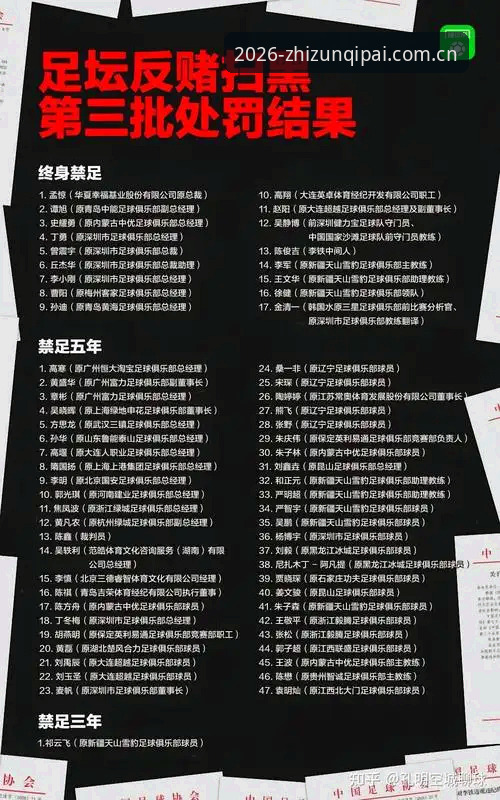 2026-zhizunqipai.com.cn
足坛反赌扫黑
第三批处罚结果
终身禁足
1. 孟惊（华夏幸福基业股份有限公司原总裁）
2. 谭旭（原青岛中能足球俱乐部副总经理）
3. 史耀勇（原内蒙古中优足球俱乐部总经理）
4. 丁勇（原深圳市足球俱乐部总经理）
5. 曾震宇（原深圳市足球俱乐部总裁）
6. 丘杰华（原深圳市足球俱乐部总裁助理）
7. 李小刚（原深圳市足球俱乐部总经理）
8. 曹阳（原梅州客家足球俱乐部总经理）
9. 孙迪（原青岛黄海足球俱乐部总经理）
10. 高翔（大连英卓体育经纪开发有限公司职工）
11. 赵阳（原大连超越足球俱乐部总经理及副董事长）
12. 吴静博（前深圳健力宝足球队守门员、
中国国家沙滩足球队前守门员教练）
13. 陈俊吉（李铁中间人）
14. 李军（原新疆天山雪豹足球俱乐部主教练）
15. 王文华（原新疆天山雪豹足球俱乐部助理教练）
16. 徐健（原新疆天山雪豹足球俱乐部领队）
17. 金清一（韩国水原三星足球俱乐部前比赛分析官、
原深圳市足球俱乐部教练翻译）
禁足五年
1. 高寒（原广州恒大淘宝足球俱乐部总经理）
2. 黄盛华（原广州富力足球俱乐部副董事长）
3. 章彬（原广州富力足球俱乐部总经理）
4. 吴晓晖（原上海绿地申花足球俱乐部董事长）
5. 方思龙（原武汉三镇足球俱乐部总经理）
6. 孙华（原山东鲁能泰山足球俱乐部总经理）
7. 高堰（原大连人职业足球俱乐部总经理）
8. 隋国扬（原上海上港集团足球俱乐部总经理）
9. 李明（原北京国安足球俱乐部总经理）
10. 郭光琪（原河南建业足球俱乐部总经理）
11. 焦凤波（原浙江绿城足球俱乐部总经理）
12. 黄凡农（原杭州绿城足球俱乐部副总经理）
13. 陈鑫（裁判员）
14. 吴轶利（范皓体育文化咨询服务（湖南）有限
公司总经理）
15. 李慎（北京三德睿智体育文化有限公司经理）
16. 陈祺（青岛吉荣体育经纪有限公司执行董事）
17. 陈方舟（原内蒙古中优足球俱乐部球员）
18. 丁冬梅（原深圳市足球俱乐部副总经理）
19. 胡燕明（原保定英利易通足球俱乐部竞赛部职工）
20. 黄磊（原湖北楚风合力足球俱乐部球员）
21. 刘禹辰（原大连超越足球俱乐部球员）
22. 刘玉圣（原大连超越足球俱乐部球员）
23. 麦帆（原深圳市足球俱乐部董事长）
24. 桑一非（原辽宁足球俱乐部球员）
25. 宋琛（原辽宁足球俱乐部球员）
26. 陶婷婷（原江苏常奥体育发展股份有限公司董事长）
27. 熊飞（原辽宁足球俱乐部球员）
28. 张野（原辽宁足球俱乐部球员）
29. 朱庆伟（原保定英利易通足球俱乐部竞赛部负责人）
30. 朱子林（原内蒙古中优足球俱乐部球员）
31. 刘鑫垚（原昆山足球俱乐部总经理）
32. 和正元（原新疆天山雪豹足球俱乐部助理教练）
33. 严明超（原新疆天山雪豹足球俱乐部助理教练）
34. 严智宇（原新疆天山雪豹足球俱乐部球员）
35. 吴鹏（原新疆天山雪豹足球俱乐部球员）
36. 杨博宇（原深圳市足球俱乐部球员）
37. 刘毅（原黑龙江冰城足球俱乐部球员）
38. 尼扎木丁－阿凡提（原黑龙江冰城足球俱乐部球员）
39. 贾晓琛（原石家庄功夫足球俱乐部球员）
40. 姜文骏（原昆山足球俱乐部球员）
41. 朱子森（原新疆天山雪豹足球俱乐部球员）
42. 王敬平（原浙江毅腾足球俱乐部球员）
43. 张松（原浙江毅腾足球俱乐部球员）
44. 郭子超（原江西联盛足球俱乐部球员）
45. 王波（原内蒙古中优足球俱乐部主教练）
46. 陈懋（原贵州恒智诚足球俱乐部主教练）
47. 袁明灿（原江西北大门足球俱乐部球员）
禁足三年
1.祁云飞（原新疆天山雪豹足球俱乐部球员）
知乎 @孔明空城聊球
中国足球协会